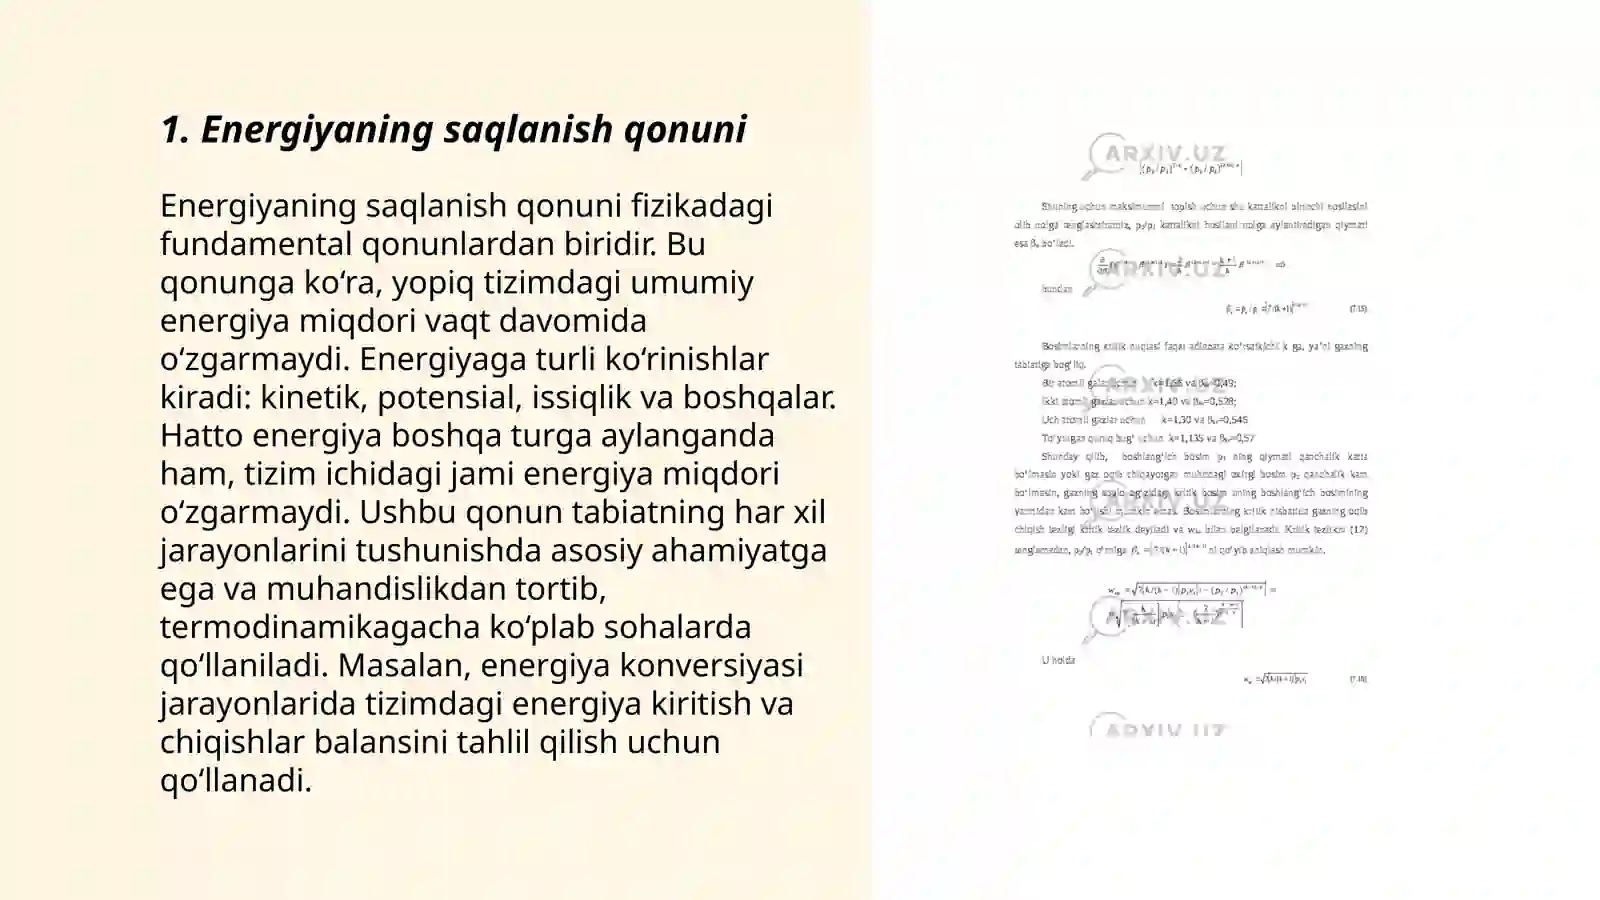 1. Energiyaning saqlanish qonuni
Energiyaning saqlanish qonuni fizikadagi
fundamental qonunlardan biridir. Bu
qonunga ko‘ra, yopiq tizimdagi umumiy
energiya miqdori vaqt davomida
o‘zgarmaydi. Energiyaga turli ko‘rinishlar
kiradi: kinetik, potensial, issiqlik va boshqalar.
Hatto energiya boshqa turga aylanganda
ham, tizim ichidagi jami energiya miqdori
o‘zgarmaydi. Ushbu qonun tabiatning har xil
jarayonlarini tushunishda asosiy ahamiyatga
ega va muhandislikdan tortib,
termodinamikagacha ko‘plab sohalarda
qo‘llaniladi. Masalan, energiya konversiyasi
jarayonlarida tizimdagi energiya kiritish va
chiqishlar balansini tahlil qilish uchun
qo‘llanadi.
ARXIV.UZ
Shuning uchun maksimumni topish uchun shu kattalikni birinchi hosilasini
olib nolga tenglashtiramiz, p₂/p₁ kattalikni hosilani nolga aylantiradigan qiymati
esa βₖ bo‘ladi.
ARXIV.UZ
bundan
(7.15)
Bosimlarning kritik nuqtasi faqat adiabata ko‘rsatkichi k ga, ya’ni gazning
tabiatiga bog‘liq.
Bir atomli gazlar uchun va
Ikki atomli gazlar uchun k=1,40 va =0,528;
Uch atomli gazlar uchun k=1,30 va =0,546
To‘yingan quruq bug‘ uchun k=1,135 va =0,57
Shunday qilib, boshlang‘ich bosim p₁ ning qiymati qanchalik katta
bo‘lmasin yoki gaz oqib chiqayotgan muhitdagi oxirgi bosim p₂ qanchalik kam
bo‘lmasin, gazning kritik bosim uning boshlang‘ich bosimining
yarmidan kam bo‘lishi mumkin emas. Bosimlarning kritik nisbatida gazning oqib
chiqish tezligi kritik tezlik deyiladi va bilan belgilanadi. Kritik tezlikni (17)
tenglamadan, p₂/p₁ o‘rniga ni qo‘yib aniqlash mumkin.
ARXIV.UZ
U holda
ARXIV.UZ